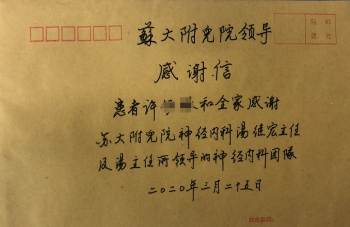 蘇大附兒院領导
感谢信
患者许 和全家感谢
苏大附兒院神经内科湯继宏主任
及湯主任所領导的神经内科团隊
二〇二〇年三月二十五日